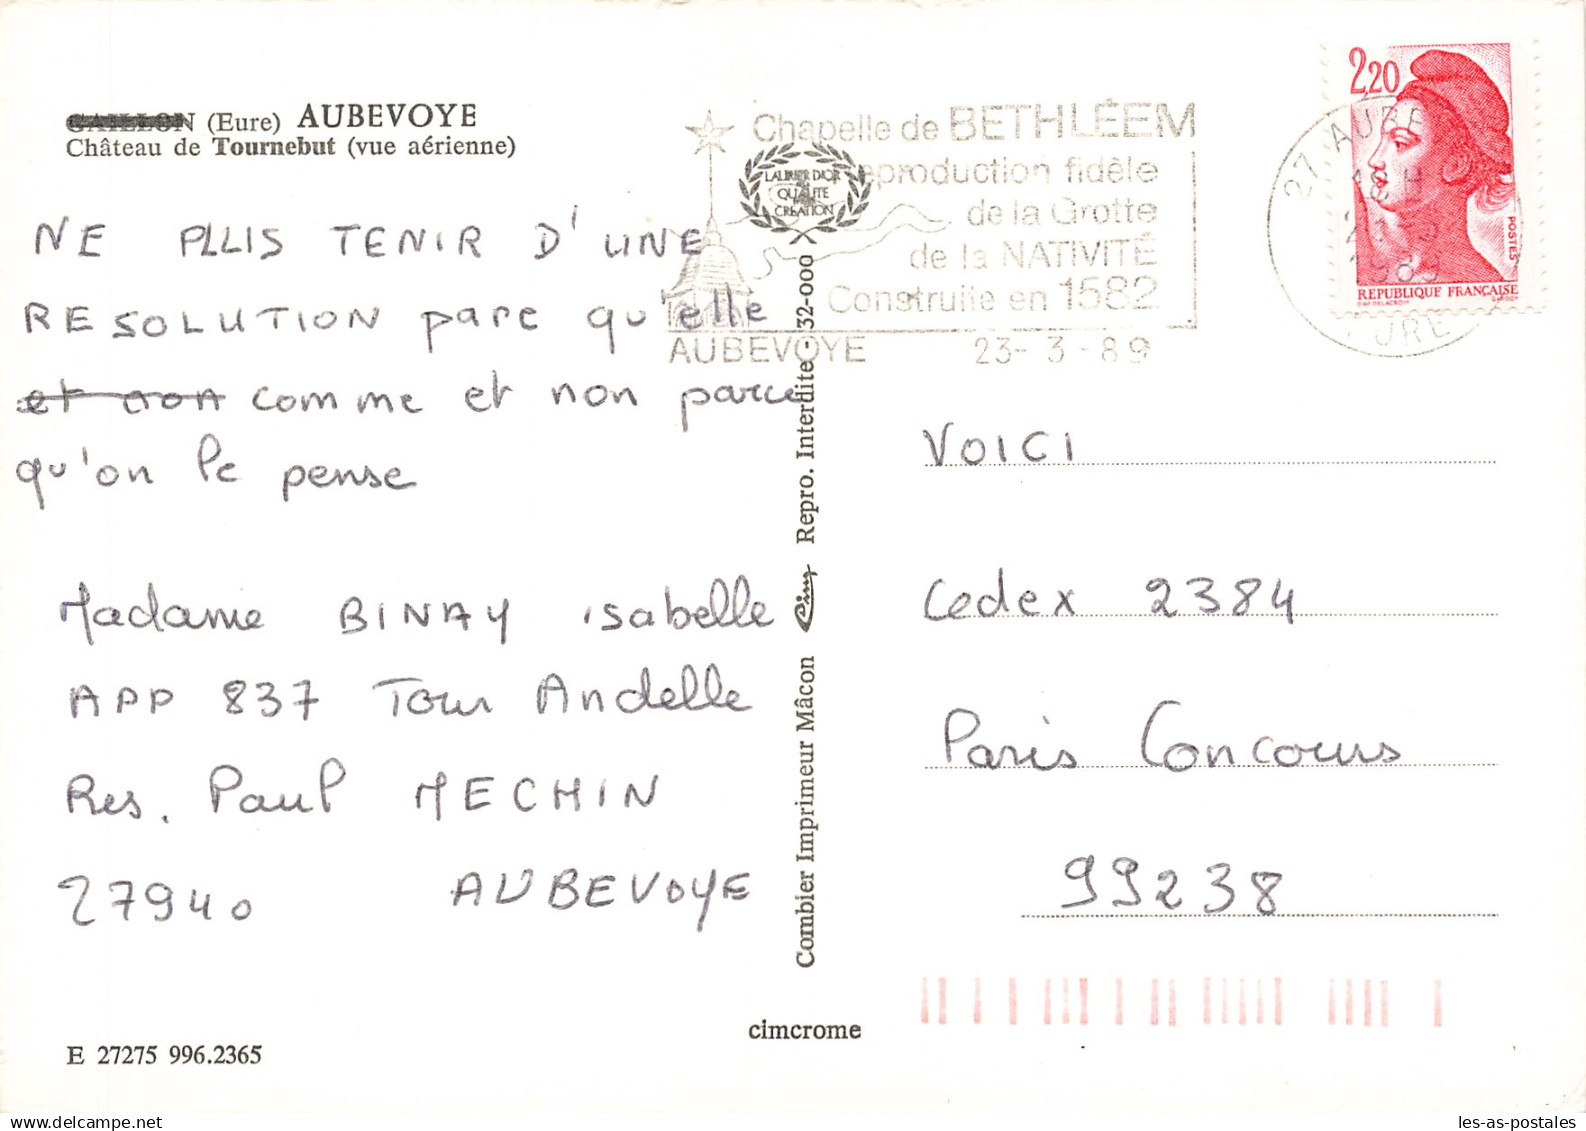 GAILLON (Eure) AUBEVOYE
Château de Tournebut (vue aérienne)
NE PLUS TENIR D'UNE
RESOLUTION parc qu'elle
et non comme et non parce
qu'on le pense
Madame BINAY isabelle
APP 837 Tour Andelle
Res. Paul MECHIN
27940 AUBEVOYE
E 27275 996.2365
cimcrome
Combier Imprimeur Mâcon Cim Repro. Interdite - 32-000
LAURIER D'OR
QUALITE
CREATION
Chapelle de BETHLÉEM
reproduction fidèle
de la Grotte
de la NATIVITÉ
Construite en 1582
AUBEVOYE 23-3-89
2,20
POSTES
REPUBLIQUE FRANÇAISE
27 AUBE
18 H
1989
EURE
VOICI
Cedex 2384
Paris Concours
99238
les-as-postales